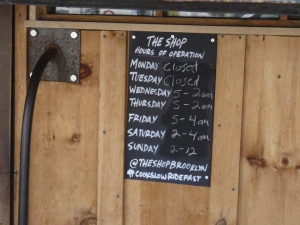 THE SHOP
HOURS OF OPERATION
MONDAY Closed
TUESDAY Closed
WEDNESDAY 5-2am
THURSDAY 5-2am
FRIDAY 5-4am
SATURDAY 2-4am
SUNDAY 2-12
@THESHOPBROOKLYN
#COOKSLOWRIDEFAST